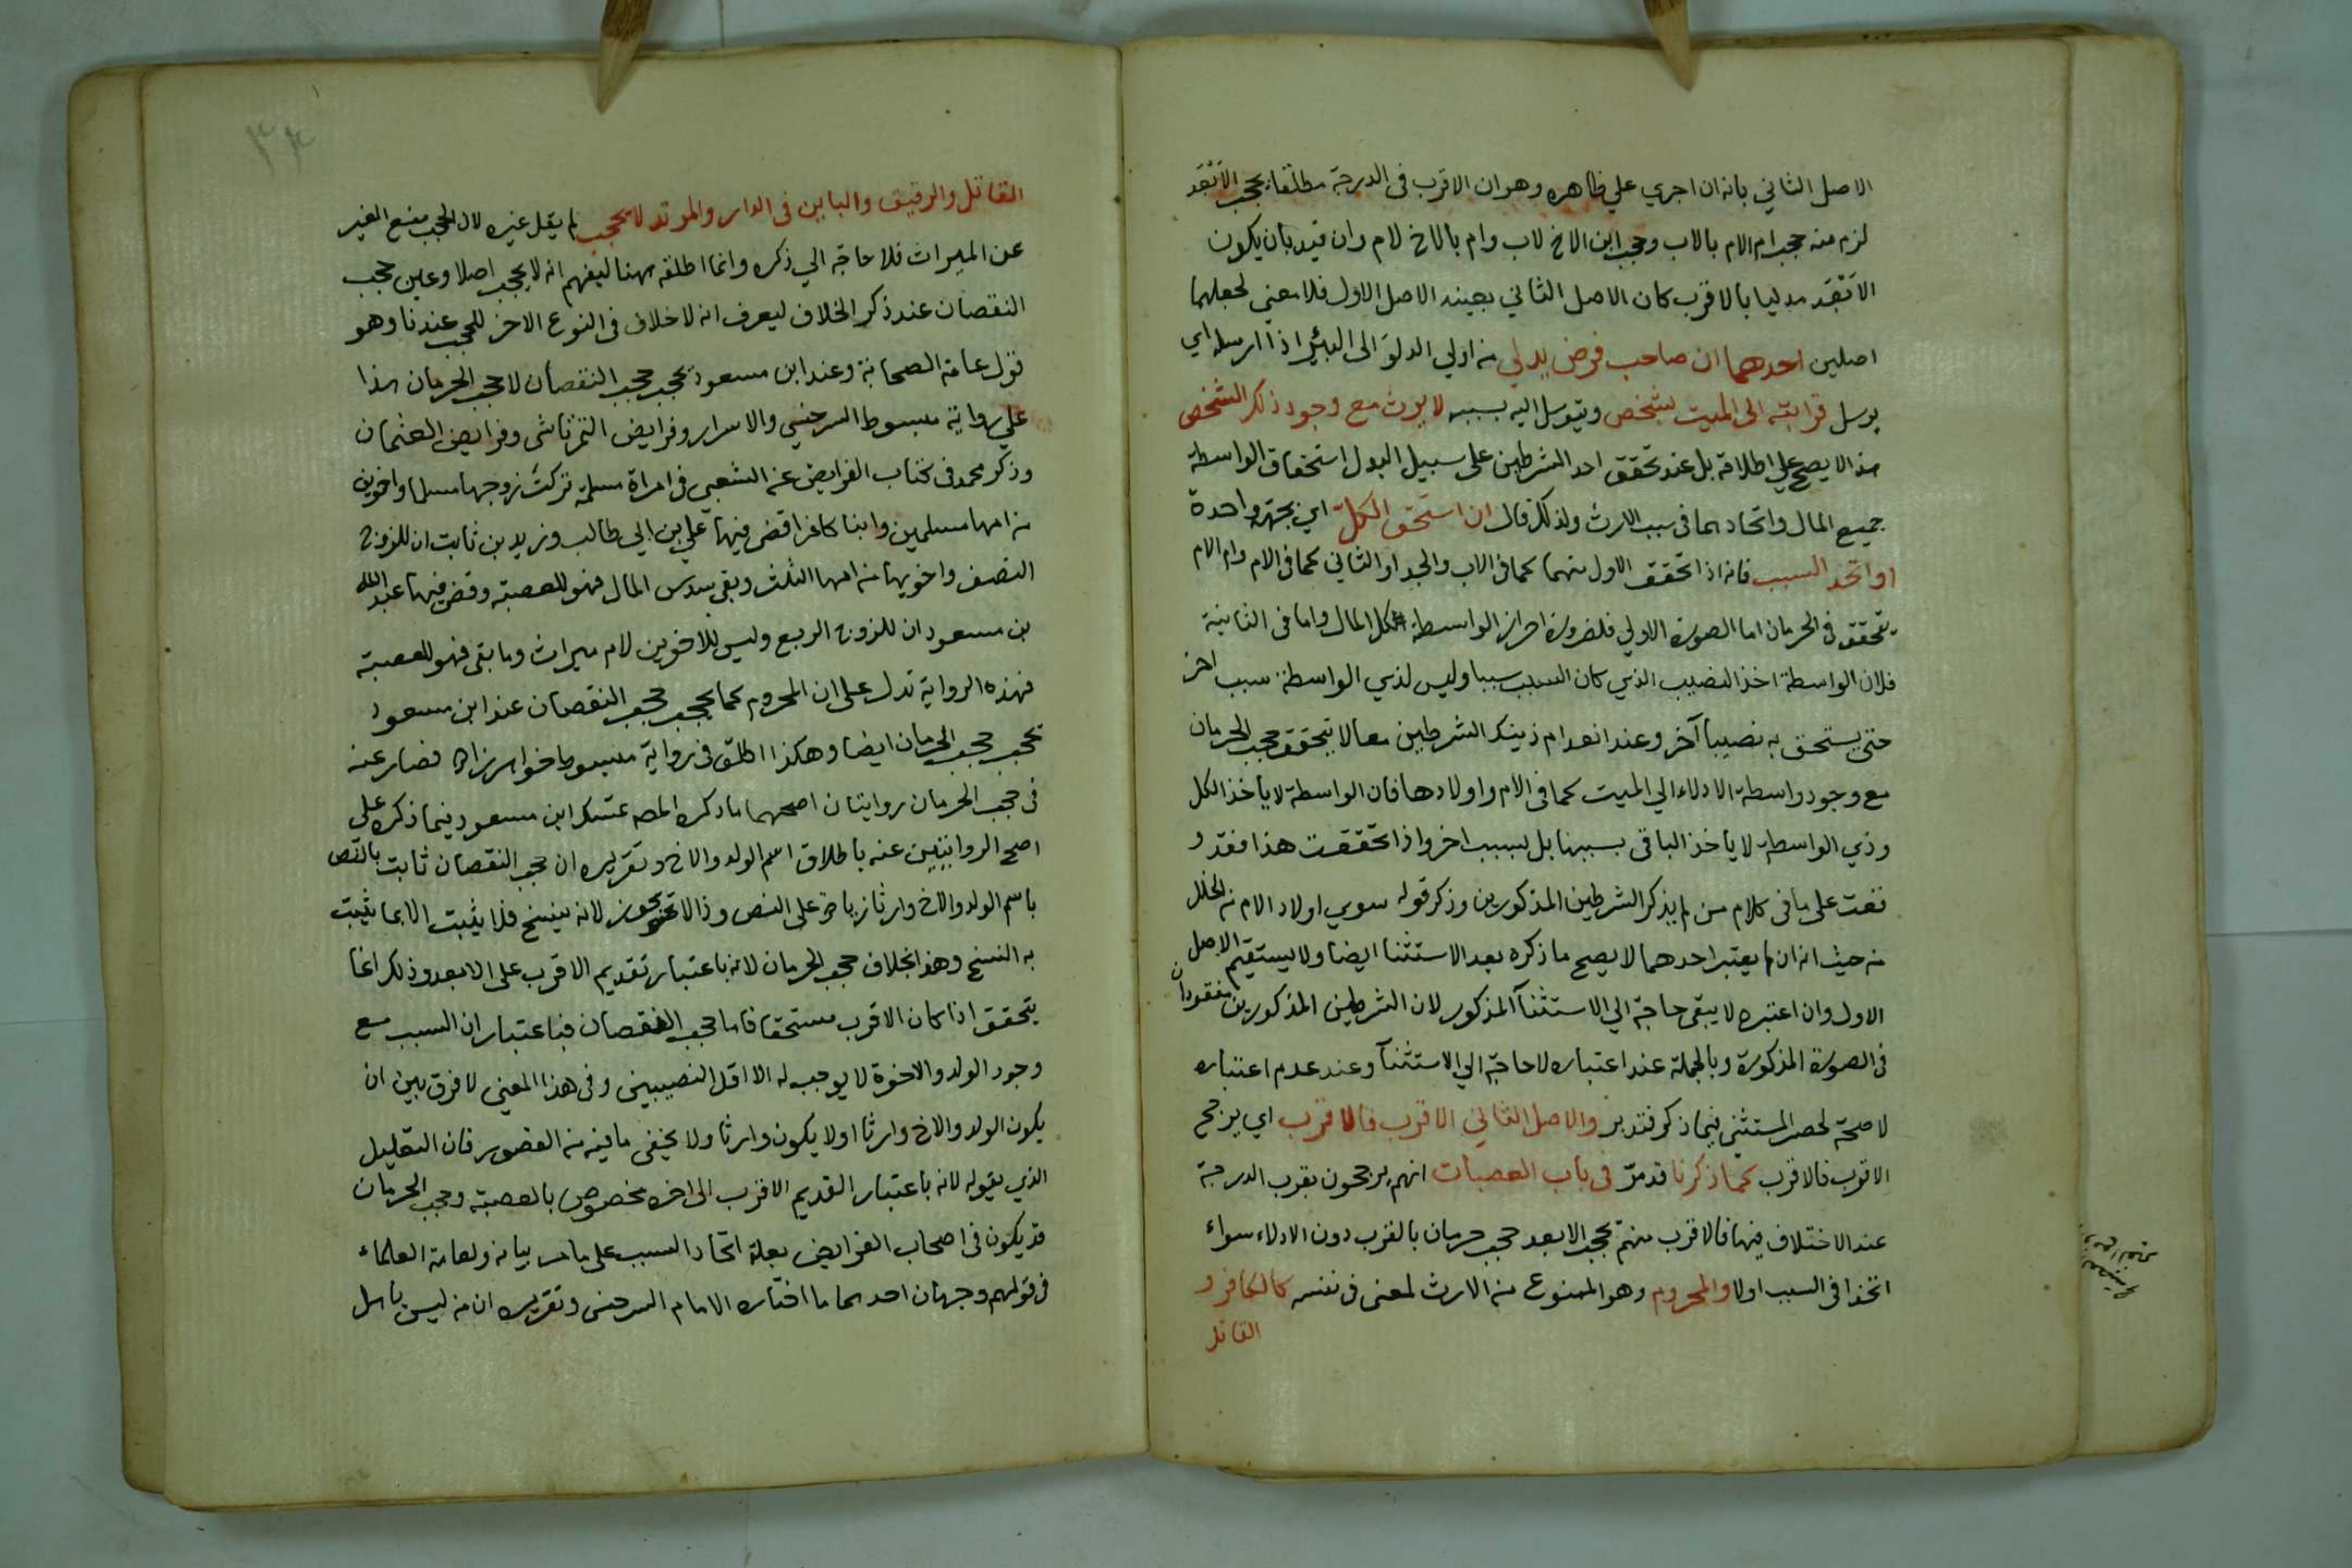 الاصل الثاني بانه ان اجري علي ظاهره وهو ان الاقرب فى الدرجة مطلقا يحجب الابعد
لزم منه حجب ام الام بالاب وحجب ابن الاخ لاب وام بالاخ لام وان قيد بان يكون
الابعد مدليا بالاقرب كان الاصل الثاني بعينه الاصل الاول فلا معني لجعلهما
اصلين احدهما ان صاحب فرض يدلي من ادلي الدلو الى البئر اذا ارسله اي
يرسل قرابته الى الميت بشخص ويتوسل اليه بسببه لا يرث مع وجود ذلك الشخص
هذا لا يصح علي اطلاقه بل عند تحقق احد الشرطين على سبيل البدل استحقاق الواسطة
جميع المال واتحادهما فى سبب الارث ولذلك قال ان استحق الكل اي بجهة واحدة
او اتحد السبب فانه اذا تحقق الاول منهما كما فى الاب والجد او الثاني كما فى الام وام الام
يتحقق الحرمان اما الصورة الاولي فلضرورة احراز الواسطة كل المال واما فى الثانية
فلان الواسطة اخذ النصيب الذي كان السبب سببا وليس لذي الواسطة سبب اخر
حتى يستحق به نصيبا آخر وعند انعدام ذينك الشرطين معا لا يتحقق حجب الحرمان
مع وجود واسطة الادلاء الي الميت كما فى الام واولادها فان الواسطة لا يأخذ الكل
وذي الواسطة لا يأخذ الباقى بسببها بل بسبب اخر واذا تحققت هذا فقد و
قفت على ما فى كلام من لم يذكر الشرطين المذكورين وذكر قوله سوي اولاد الام من الخلل
من حيث انه ان لم يعتبر احدهما لا يصح ما ذكره بعد الاستثنا ايضا ولا يستقيم الاصل
الاول وان اعتبره لا يبقى حاجة الي الاستثنآ المذكور لان الشرطين المذكورين مفقودان
فى الصورة المذكورة وبالجملة عند اعتباره لا حاجة الي الاستثنآ وعند عدم اعتباره
لا صحة لحصر المستثنى فيما ذكر فتدبر والاصل الثاني الاقرب فالاقرب اي يرجح
الاقرب فالاقرب كما ذكرنا قد مر فى باب العصبات انهم يرجحون بقرب الدرجة
عند الاختلاف فيها فالاقرب منهم يحجب الابعد حجب حرمان بالقرب دون الادلاء سواء
اتحدا فى السبب اولا والمحروم وهو الممنوع من الارث لمعنى فى نفسه كالكافر و
القاتل
القاتل والرقيق والبابين فى الدار والمرتد لا يحجب لم يقل غيره لان الحجب منع الغير
عن الميراث فلا حاجة الي ذكره وانما اطلقه ههنا ليفهم انه لا يحجب اصلا وعين حجب
النقصان عند ذكر الخلاف ليعرف انه لا خلاف فى النوع الاخر للحجب عندنا وهو
قول عامة الصحابة وعند ابن مسعود يحجب حجب النقصان لا حجب الحرمان هذا
على رواية مبسوط السرخسي والاسرار وفرايض التمرتاشى وفرايض العثمان
وذكر محمد فى كتاب الفرايض عن الشعبي فى امراة مسلمة تركت زوجها مسلما واخوين
من امها مسلمين وابنا كافرا قضى فيها علي بن ابي طالب وزيد بن ثابت ان للزوج
النصف واخويها من امها الثلث وبقى سدس المال فهو للعصبة وقضى فيها عبد الله
بن مسعود ان للزوج الربع وليس للاخوين لام ميراث وما بقى فهو للعصبة
فهذه الرواية تدل على ان المحروم كما يحجب حجب النقصان عند ابن مسعود
يحجب حجب الحرمان ايضا وهكذا اطلق فى رواية مبسوط خواهر زاده فصار عنه
فى حجب الحرمان روايتان اصحهما ما ذكره المصه تمسك ابن مسعود فيما ذكره على
اصح الروايتين عنه باطلاق اسم الولد والاخ وتقريره ان حجب النقصان ثابت بالنص
باسم الولد والاخ وارثا زيادة على النص وذا لا يجوز لانه ينسخ فلا يثبت الا بما يثبت
به النسخ وهذا بخلاف حجب الحرمان لانه باعتبار تقديم الاقرب على الابعد وذلك انما
يتحقق اذا كان الاقرب مستحقا فاما حجب النقصان فباعتبار ان السبب مع
وجود الولد والاخوة لا يوجب له الا اقل النصيبين وفى هذا المعنى لا فرق بين ان
يكون الولد والاخ وارثا او لا يكون وارثا ولا يخفى ما فيه من القصور فان التعليل
الذي يقوله لانه باعتبار التقديم الاقرب الى اخره مخصوص بالعصبة وحجب الحرمان
قد يكون فى اصحاب الفرايض بعلة اتحاد السبب على ما مر بيانه ولعامة العلماء
فى قولهم وجهان احدهما ما اختاره الامام السرخسى وتقريره ان من ليس باهل